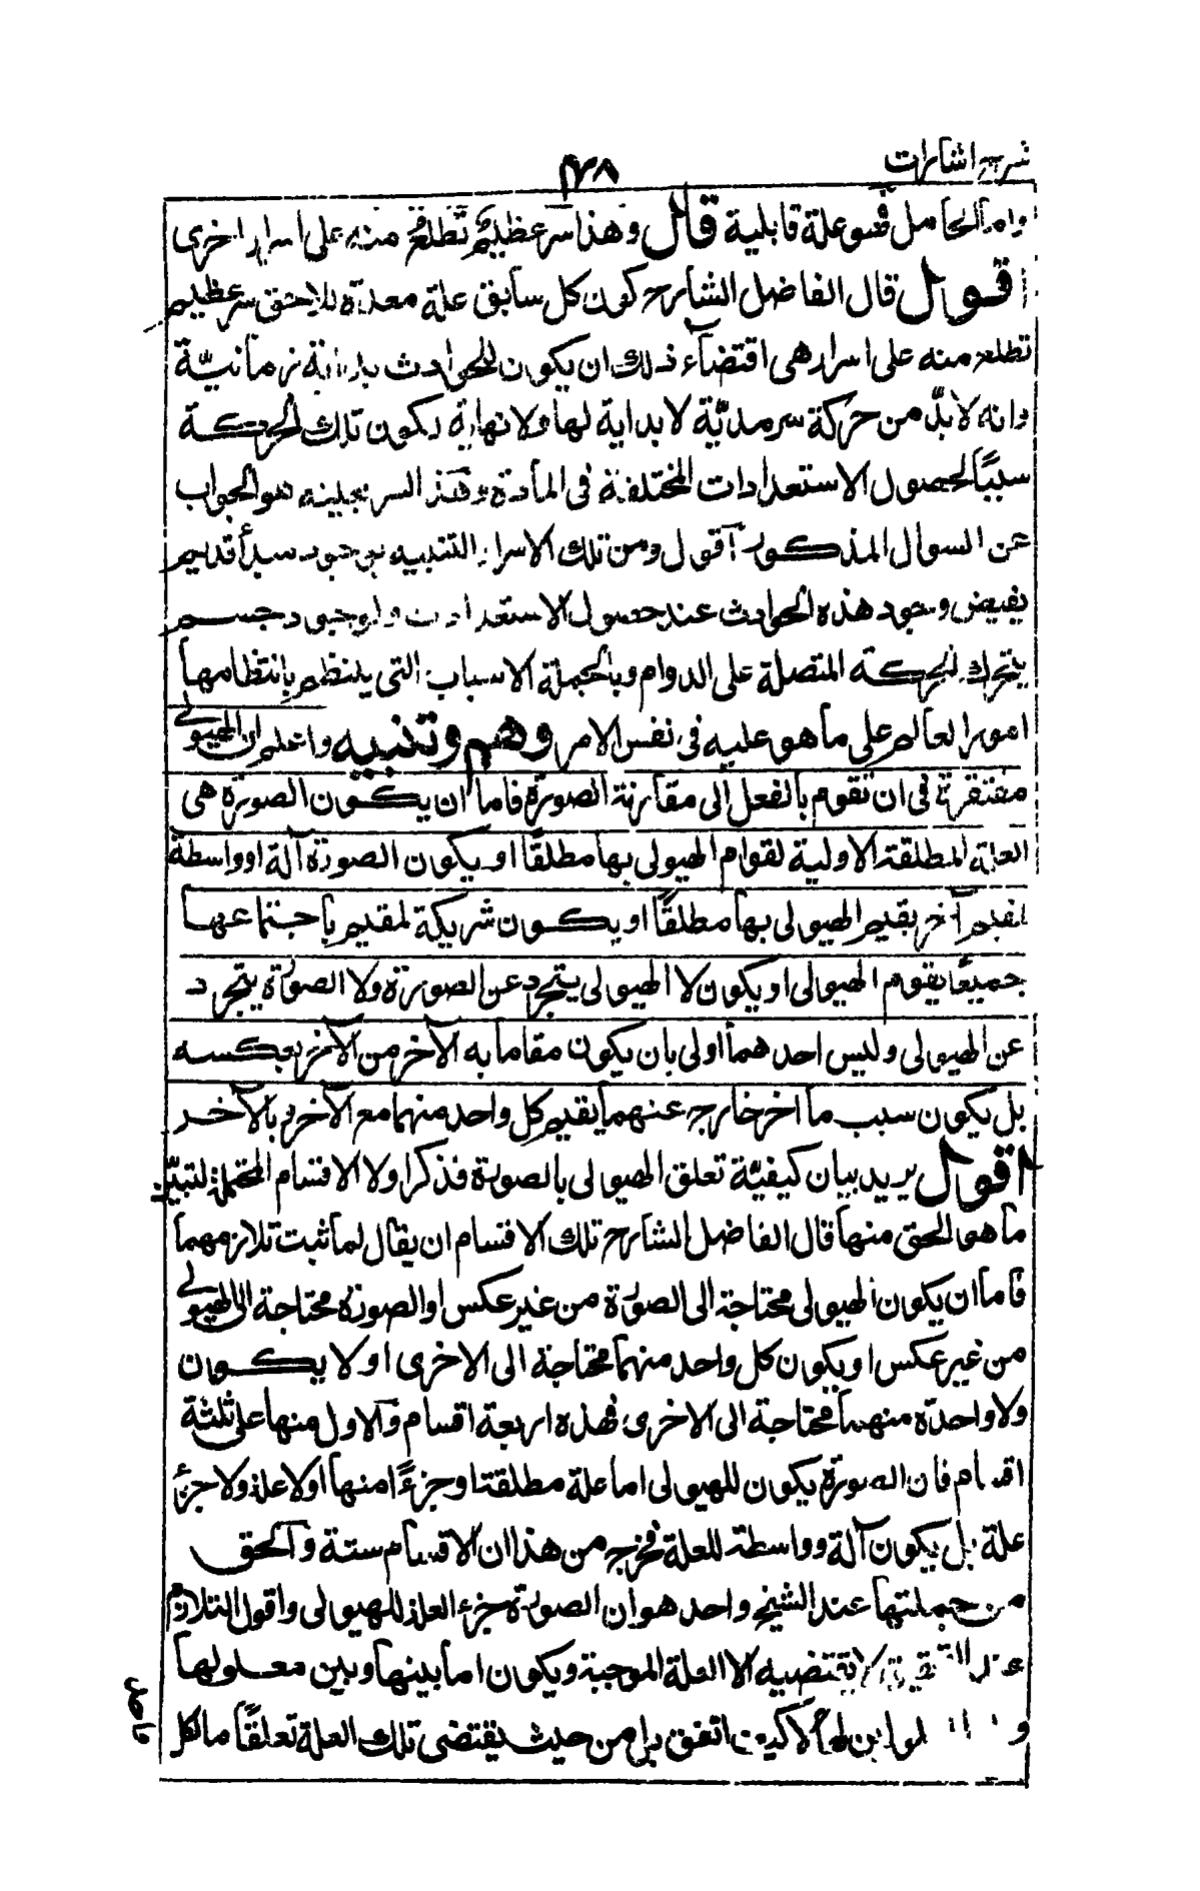 شرح اشارات
٣٧٨
واما الحامل فهو علة قابلية قال وهذا سر عظيم تطلع منه على اسرار اخرى
اقول قال الفاضل الشارح كون كل سابق علة معدة للاحق سر عظيم
تطلع منه على اسرار هى اقتضاء ذلك ان يكون للحوادث بداية زمانية
وانه لا بد من حركة سرمدية لا بداية لها ولا نهاية ليكون تلك الحركة
سببًا لحصول الاستعدادات المختلفة فى المادة وهذا السر بعينه هو الجواب
عن السوال المذكور آقول ومن تلك الاسرار التنبيه بوجود مبدأ قديم
يفيض وجود هذه الحوادث عند حصول الاستعدادات ولوجود جسم
يتحرك الحركة المتصلة على الدوام وبالجملة الاسباب التى ينتظم بانتظامها
امور العالم على ما هو عليه فى نفس الامر وهم وتنبيه واعلم ان الهيولى
مفتقرة فى ان تقوم بالفعل إلى مقارنة الصورة فاما ان يكون الصورة هى
العلة المطلقة الاولية لقوام الهيولى بها مطلقًا او يكون الصورة آلة او واسطة
لمقيم آخر يقيم الهيولى بها مطلقًا او يكون شريكة لمقيم باجتماعها
جميعًا يقوم الهيولى او يكون لا الهيولى يتجرد عن الصورة ولا الصورة يتجرد
عن الهيولى وليس احدهما اولى بان يكون مقاما به الآخر من الآخر بعكسه
بل يكون سبب ما اخر خارج عنهما يقيم كل واحد منهما مع الآخر او بالآخر
اقول يريد بيان كيفيّة تعلق الهيولى بالصورة فذكر اولا الاقسام المحتملة لتبيّن
ما هو الحق منها قال الفاضل الشارح تلك الاقسام ان يقال لما ثبت تلازمهما
فاما ان يكون الهيولى محتاجة الى الصورة من غير عكس او الصورة محتاجة الى الهيولى
من غير عكس او يكون كل واحد منهما محتاجة الى الاخرى او لا يكون
ولا واحدة منهما محتاجة الى الاخرى فهذه اربعة اقسام والاول منها على ثلثة
اقسام فان الصورة يكون للهيولى اما علة مطلقة او جزءًا منها او لا علة ولا جزء
علة بل يكون آلة وواسطة للعلة فخرج من هذا ان الاقسام ستة والحق
من جملتها عند الشيخ واحد هو ان الصورة جزء العلة للهيولى واقول التلازم
عند التحقيق لا يقتضيه الا العلة الموجبة ويكون اما بينها وبين معلولها
و لا كيف اتفق بل من حيث يقتضى تلك العلة تعلقًا ما لكل